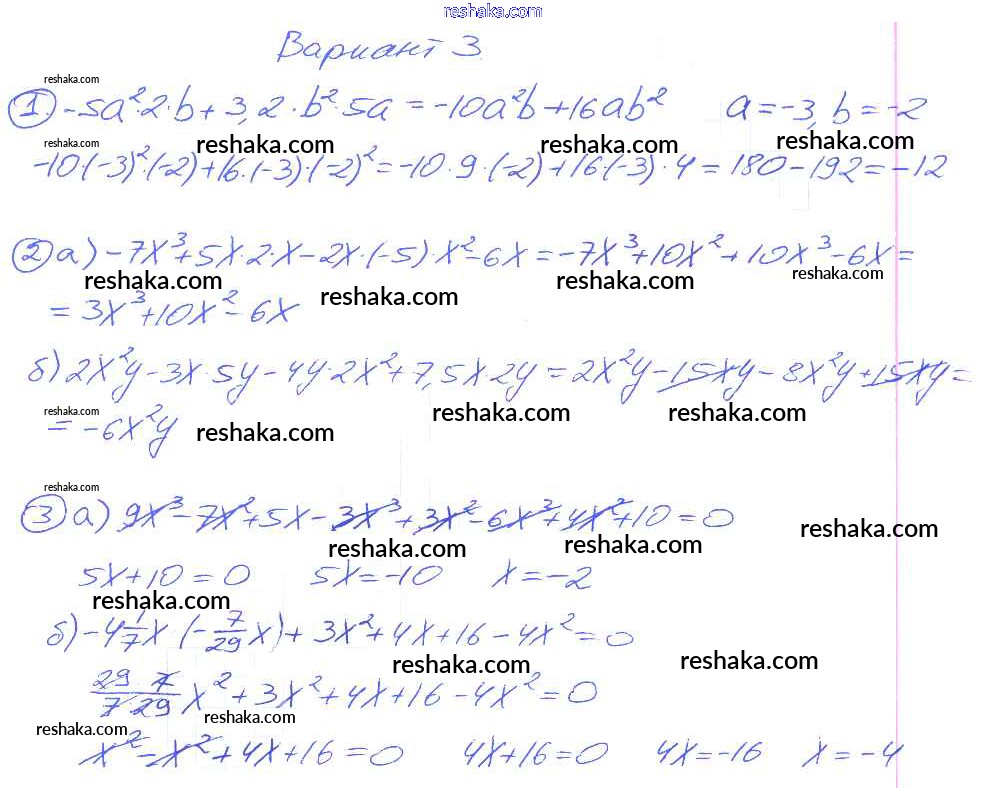 reshaka.com
Вариант 3
reshaka.com
1. -5a²·2·b + 3,2·b²·5a = -10a²b + 16ab² a = -3, b = -2
reshaka.com reshaka.com reshaka.com
-10·(-3)²·(-2) + 16·(-3)·(-2)² = -10·9·(-2) + 16·(-3)·4 = 180 - 192 = -12
2 а) -7x³ + 5x·2·x - 2x·(-5)·x² - 6x = -7x³ + 10x² + 10x³ - 6x =
reshaka.com reshaka.com reshaka.com reshaka.com
= 3x³ + 10x² - 6x
б) 2x²y - 3x·5y - 4y·2x² + 7,5x·2y = 2x²y - 15xy - 8x²y + 15xy =
reshaka.com reshaka.com reshaka.com
= -6x²y
reshaka.com
reshaka.com
3 а) 9x³ - 7x² + 5x - 3x³ + 3x² - 6x³ + 4x² + 10 = 0
reshaka.com reshaka.com reshaka.com
5x + 10 = 0 5x = -10 x = -2
reshaka.com
б) -4 1/7 x (-7/29 x) + 3x² + 4x + 16 - 4x² = 0
reshaka.com reshaka.com
29 7/7 29 x² + 3x² + 4x + 16 - 4x² = 0
reshaka.com reshaka.com
x² - x² + 4x + 16 = 0 4x + 16 = 0 4x = -16 x = -4